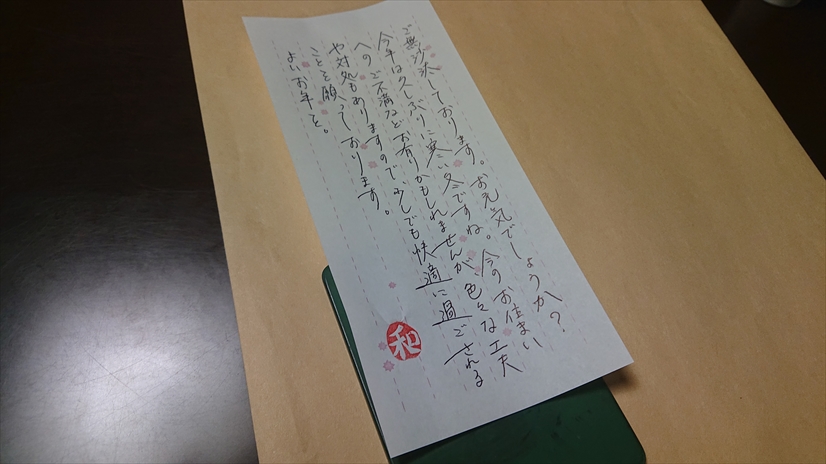 ご無沙汰しております。お元気でしょうか？
今年は久しぶりに寒い冬ですね。今のお住まい
へのご不満などお有りかもしれませんが、色々な工夫
や対処もありますので、少しでも快適に過ごされる
ことを願っております。
よいお年を。
和